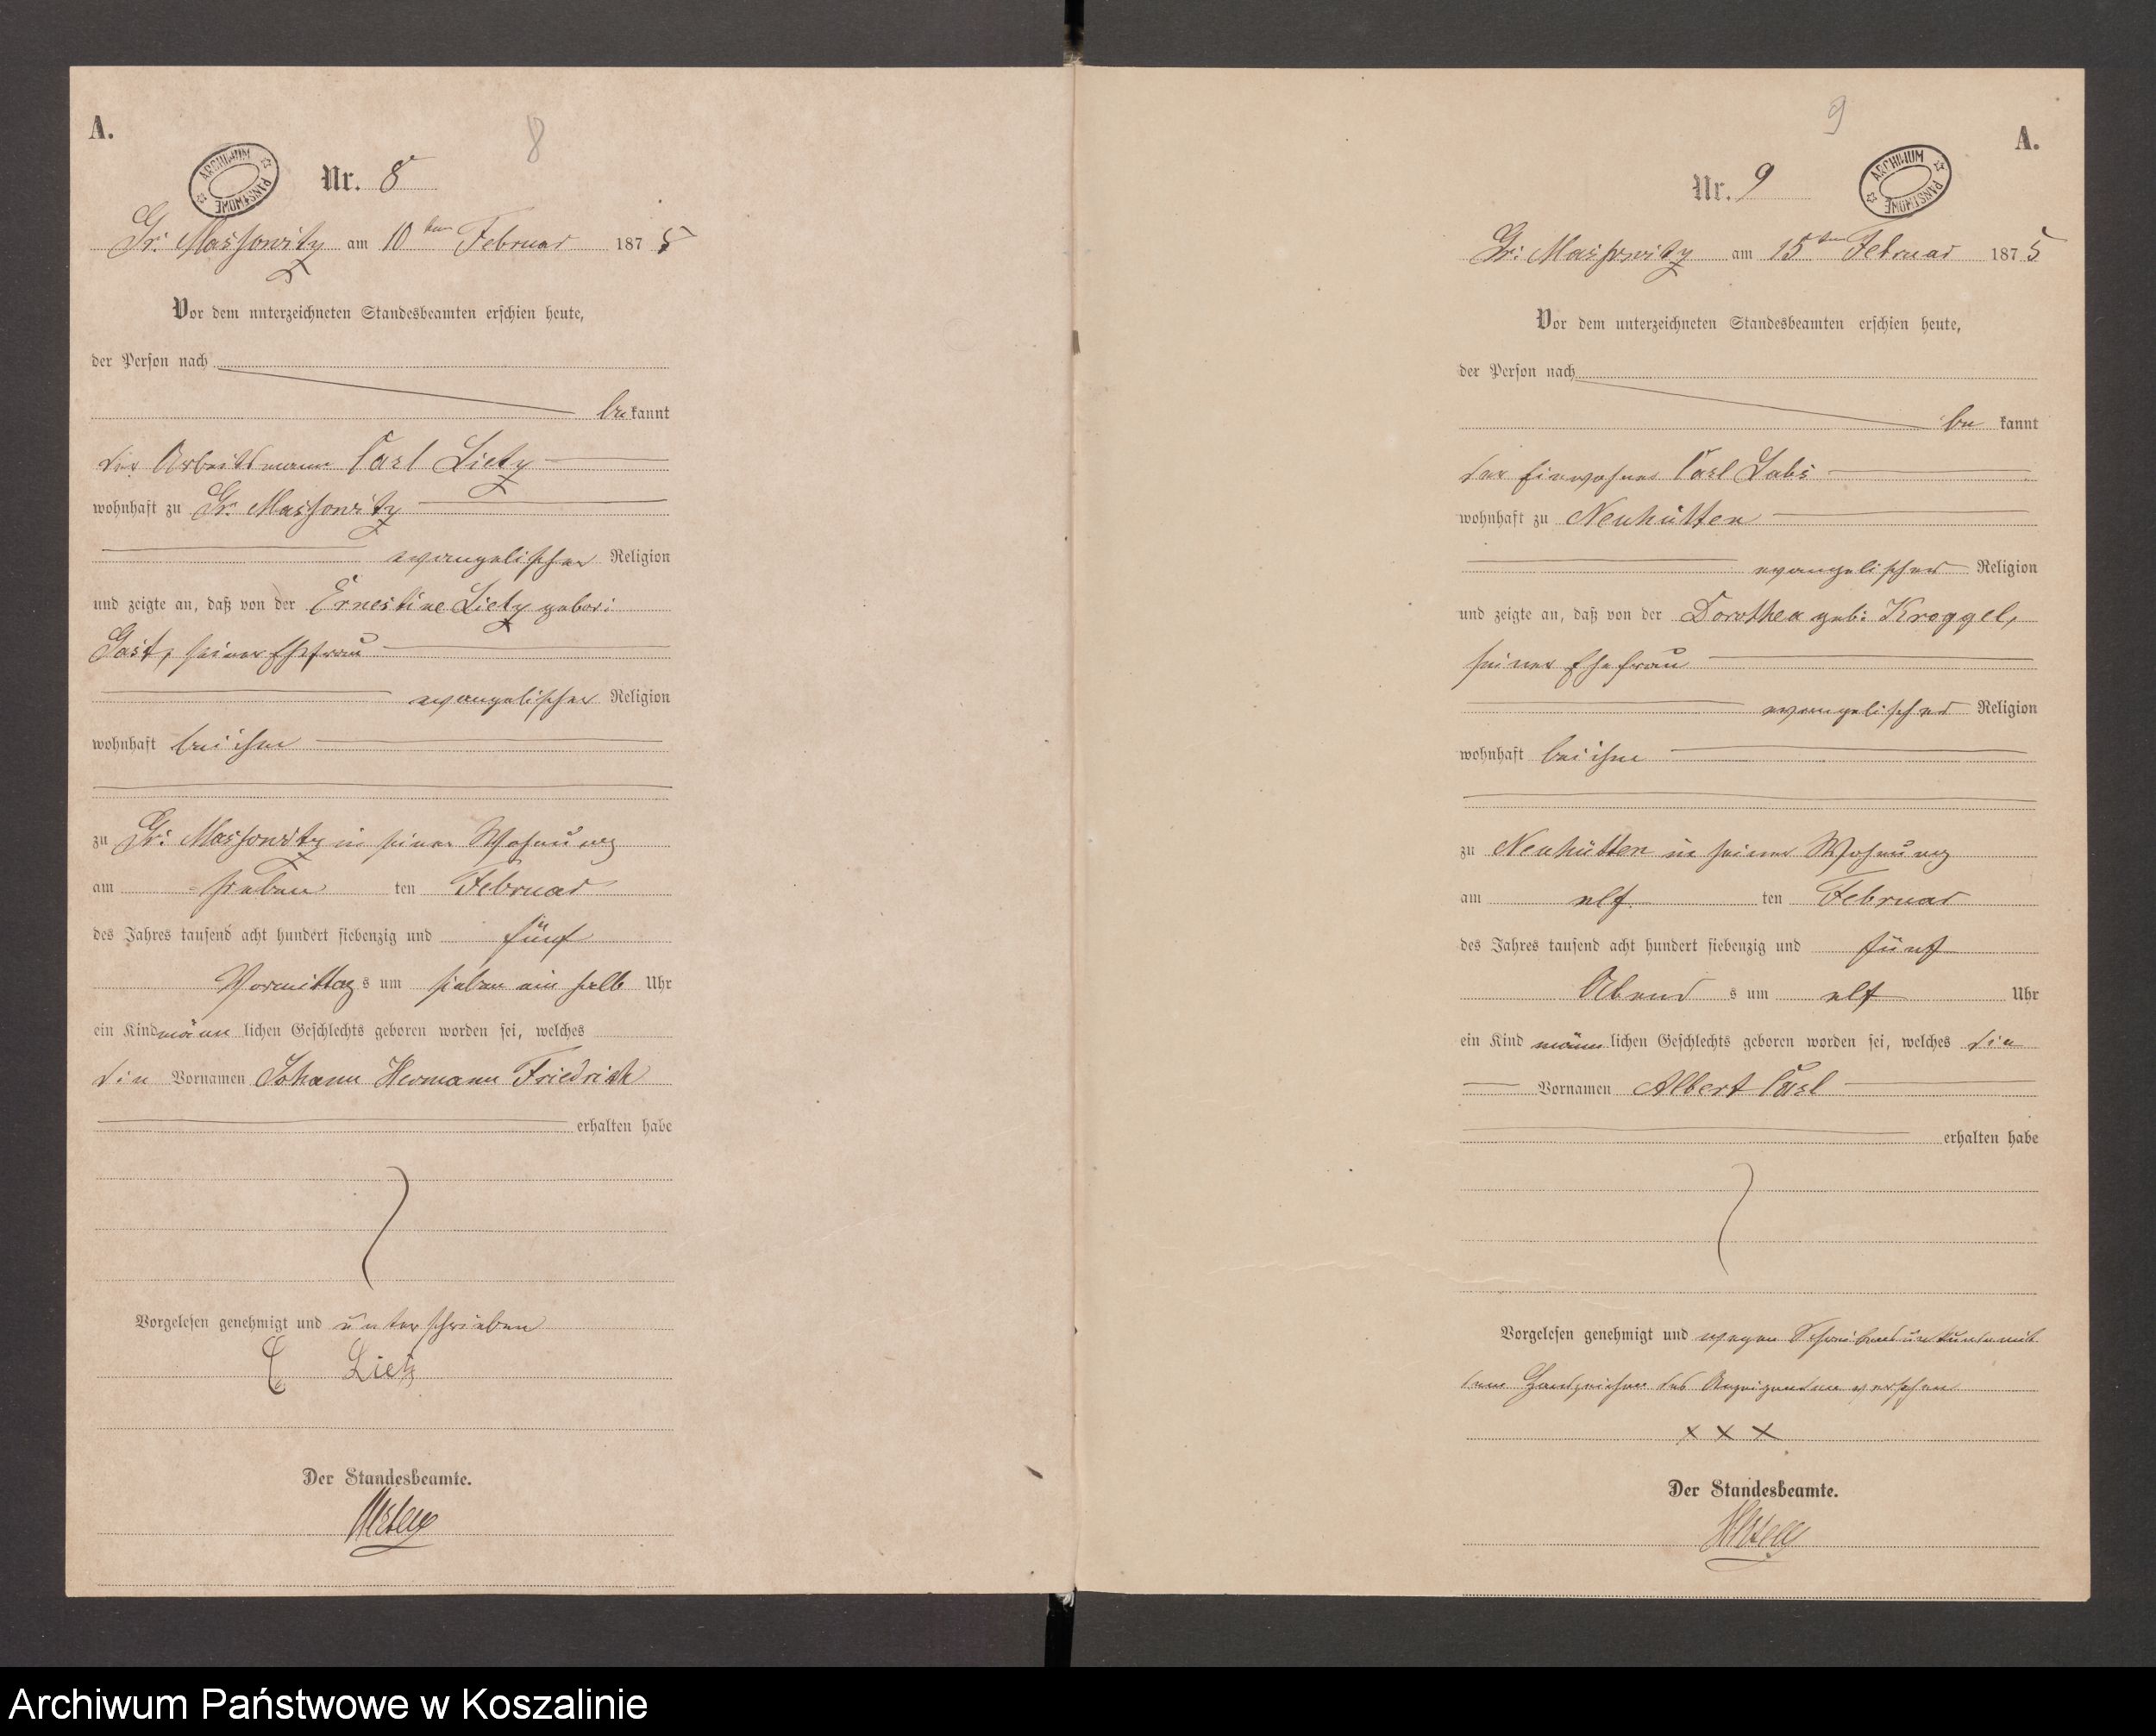 A.
8
ARCHIWUM PAŃSTWOWE
Nr. 8
Gr. Massowitz am 10ten Februar 1875
Vor dem unterzeichneten Standesbeamten erschien heute,
der Person nach
bekannt
der Arbeitsmann Carl Lietz
wohnhaft zu Gr. Massowitz
evangelischer Religion
und zeigte an, daß von der Ernestine Lietz gebor:
Gast, seiner Ehefrau
evangelischer Religion
wohnhaft bei ihm
zu Gr: Massowitz in seiner Wohnung
am sieben ten Februar
des Jahres tausend acht hundert siebenzig und fünf
Vormittags um sieben ein halb Uhr
ein Kind männlichen Geschlechts geboren worden sei, welches
die Vornamen Johann Hermann Friedrich
erhalten habe
Vorgelesen genehmigt und unterschrieben
C. Lietz
Der Standesbeamte.
9
A.
Nr. 9
ARCHIWUM PAŃSTWOWE
Gr: Massowitz am 15ten Februar 1875
Vor dem unterzeichneten Standesbeamten erschien heute,
der Person nach
be kannt
der Einwohner Carl Labs
wohnhaft zu Neuhütten
evangelischer Religion
und zeigte an, daß von der Dorothea geb: Kroggel,
seiner Ehefrau
evangelischer Religion
wohnhaft bei ihm
zu Neuhütten in seiner Wohnung
am elf ten Februar
des Jahres tausend acht hundert siebenzig und fünf
Abend s um elf Uhr
ein Kind männlichen Geschlechts geboren worden sei, welches die
Vornamen Albert Carl
erhalten habe
Vorgelesen genehmigt und wegen Schreibensunkunde mit
dem Handzeichen des Anzeigenden versehen
x x x
Der Standesbeamte.
Archiwum Państwowe w Koszalinie